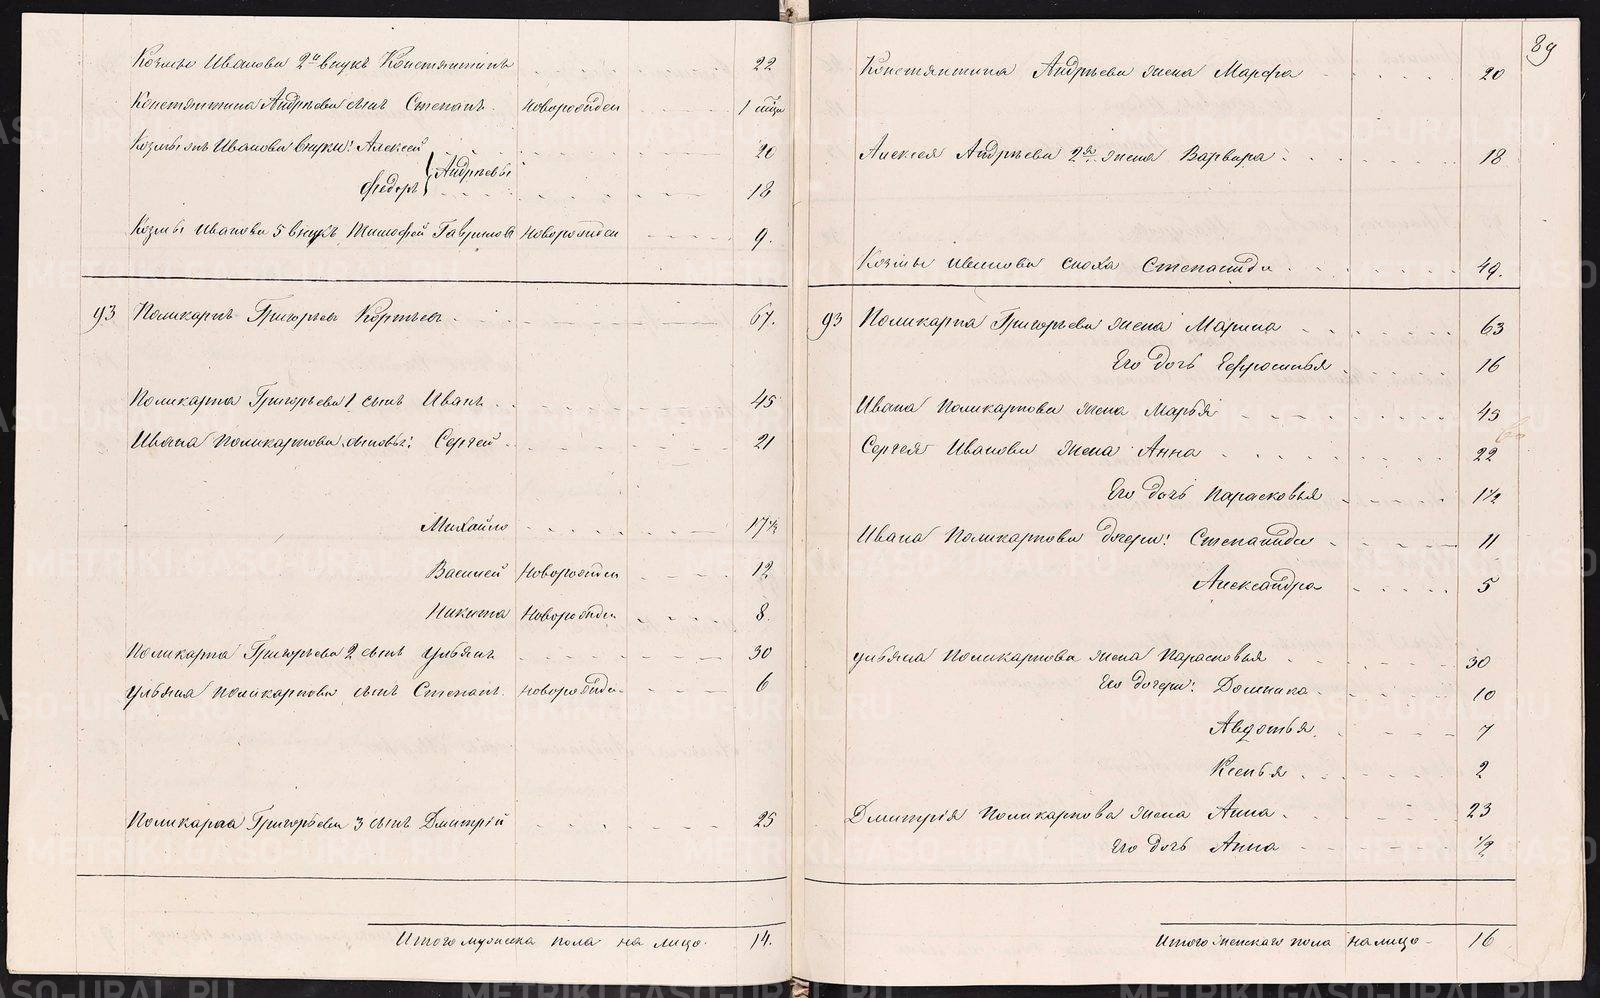 Козмы Иванова 2й внукъ Констянтинъ 22
Констянтина Андрѣева сынъ Степанъ. новорожден 1 мѣся
Козмы жъ Иванова внуки: Алексей 20
Андрѣевы
Федоръ 18
Козмы Иванова 5 внукъ Тимофей Гаврилов Новорожден 9.
93 Поликарпъ Григорьевъ 67.
Поликарпа Григорьева 1 сынъ Иванъ 45
Ивана Поликарпова сыновья: Сергей 21
Михайло 17½
Василей Новорожден 12
Никита Новорожден 8.
Поликарпа Григорьева 2 сынъ Ульянъ 30
Ульяна Поликарпова сынъ Степанъ новорожден 6
Поликарпа Григорьева 3 сынъ Дмитрій 25
Итого мужеска пола на лицо. 14.
89
Констянтина Андрѣева жена Марфа 20
Алексея Андрѣева 2я жена Варвара 18
Козмы Иванова сноха Степанида 49.
93 Поликарпа Григорьева жена Марина 63
Его дочь Ефросинья 16
Ивана Поликарпова жена Марья 43
Сергея Иванова жена Анна 22
Его дочь Парасковья 1½
Ивана Поликарпова дочери: Степанида 11
Александра 5
Ульяна Поликарпова жена Парасковья 30
Его дочери: Домника 10
Авдотья 7
Ксенья 2
Дмитрія Поликарпова жена Анна 23
Его дочь Анна ½
Итого женскаго пола на лицо 16
METRIKI.GASO-URAL.RU